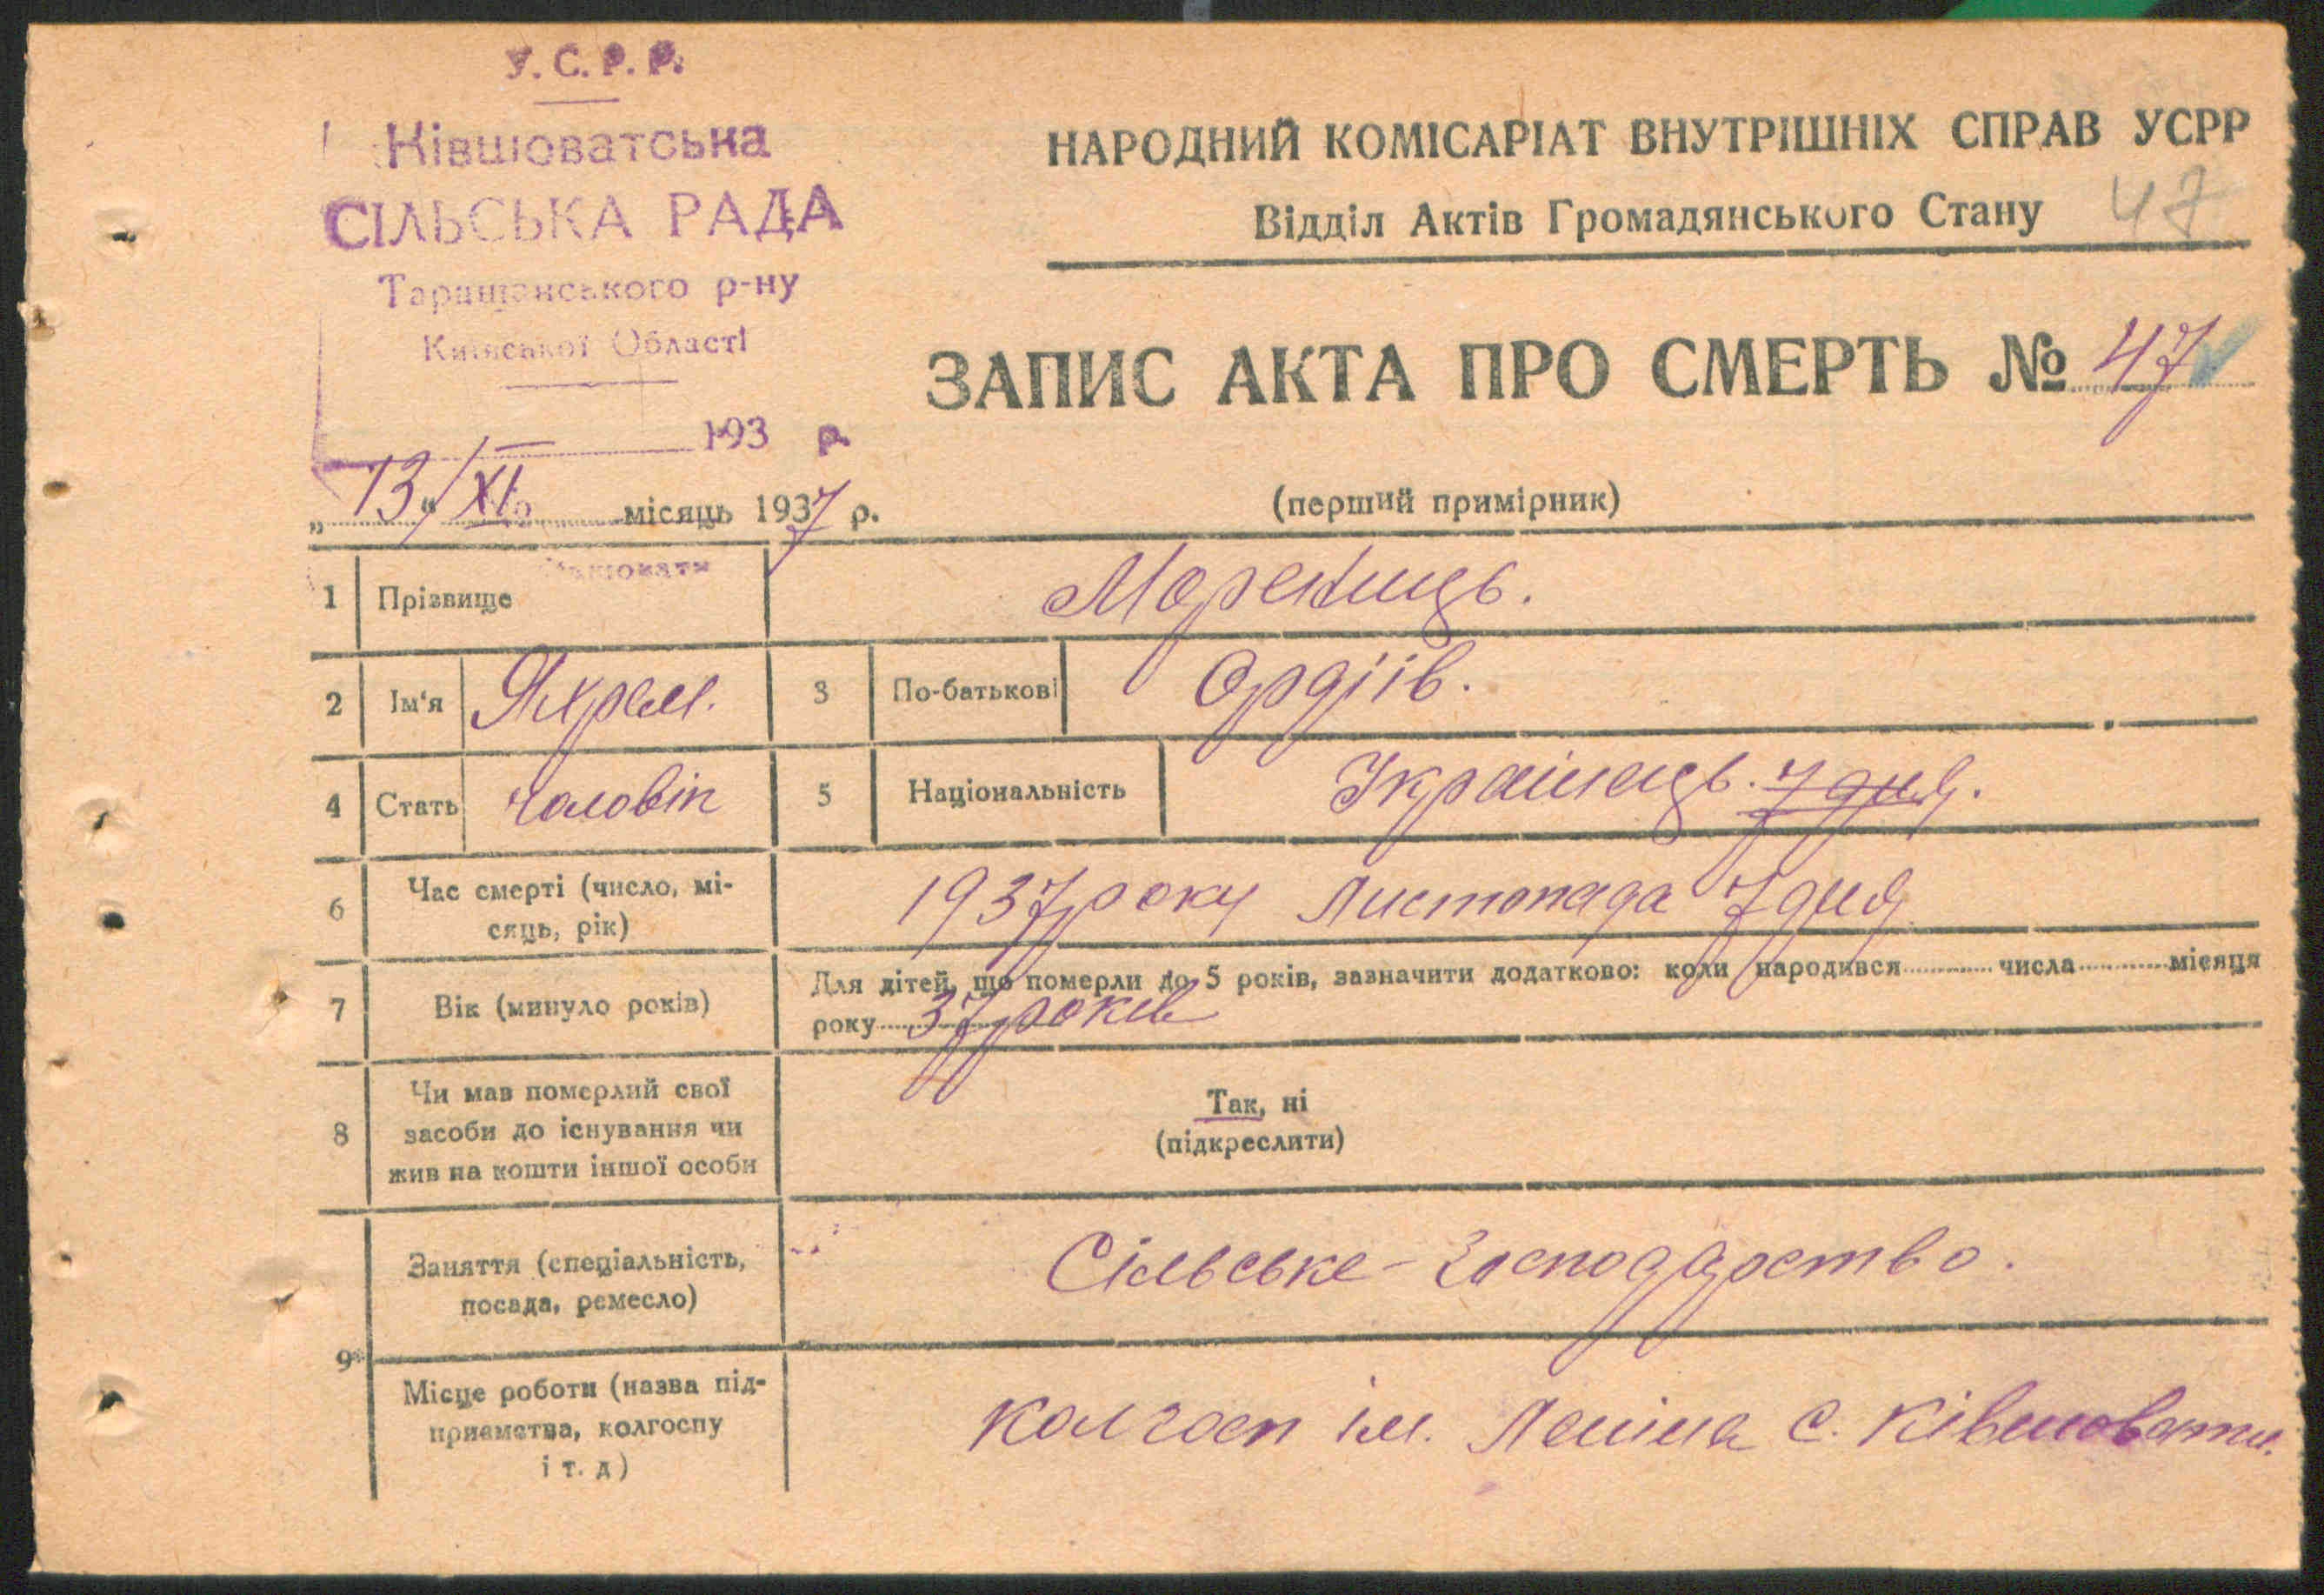 У.С.Р.Р.
Ківшоватська
СІЛЬСЬКА РАДА
Таращанського р-ну
Київської Області
193 р.
НАРОДНИЙ КОМІСАРІАТ ВНУТРІШНІХ СПРАВ УСРР
Відділ Актів Громадянського Стану 47
ЗАПИС АКТА ПРО СМЕРТЬ № 47
„13“ XI місяць 1937 р.
(перший примірник)
1 Прізвище
2 Ім‘я Яхрем. 3 По-батькові Ордіів.
4 Стать чоловік 5 Національність Українець. 7 дня.
6 Час смерті (число, мі-
сяць, рік) 1937 року Листопада 7 дня
7 Вік (минуло років) Для дітей, що померли до 5 років, зазначити додатково: коли народився числа місяця
року 37 років
8 Чи мав померлий свої
засоби до існування чи
жив на кошти іншої особи
Так, ні
(підкреслити)
9 Заняття (спеціальність,
посада, ремесло) Сільське-господарство.
Місце роботи (назва під-
приємства, колгоспу
і т. д) колгосп ім. Леніна с. Ківшовати.